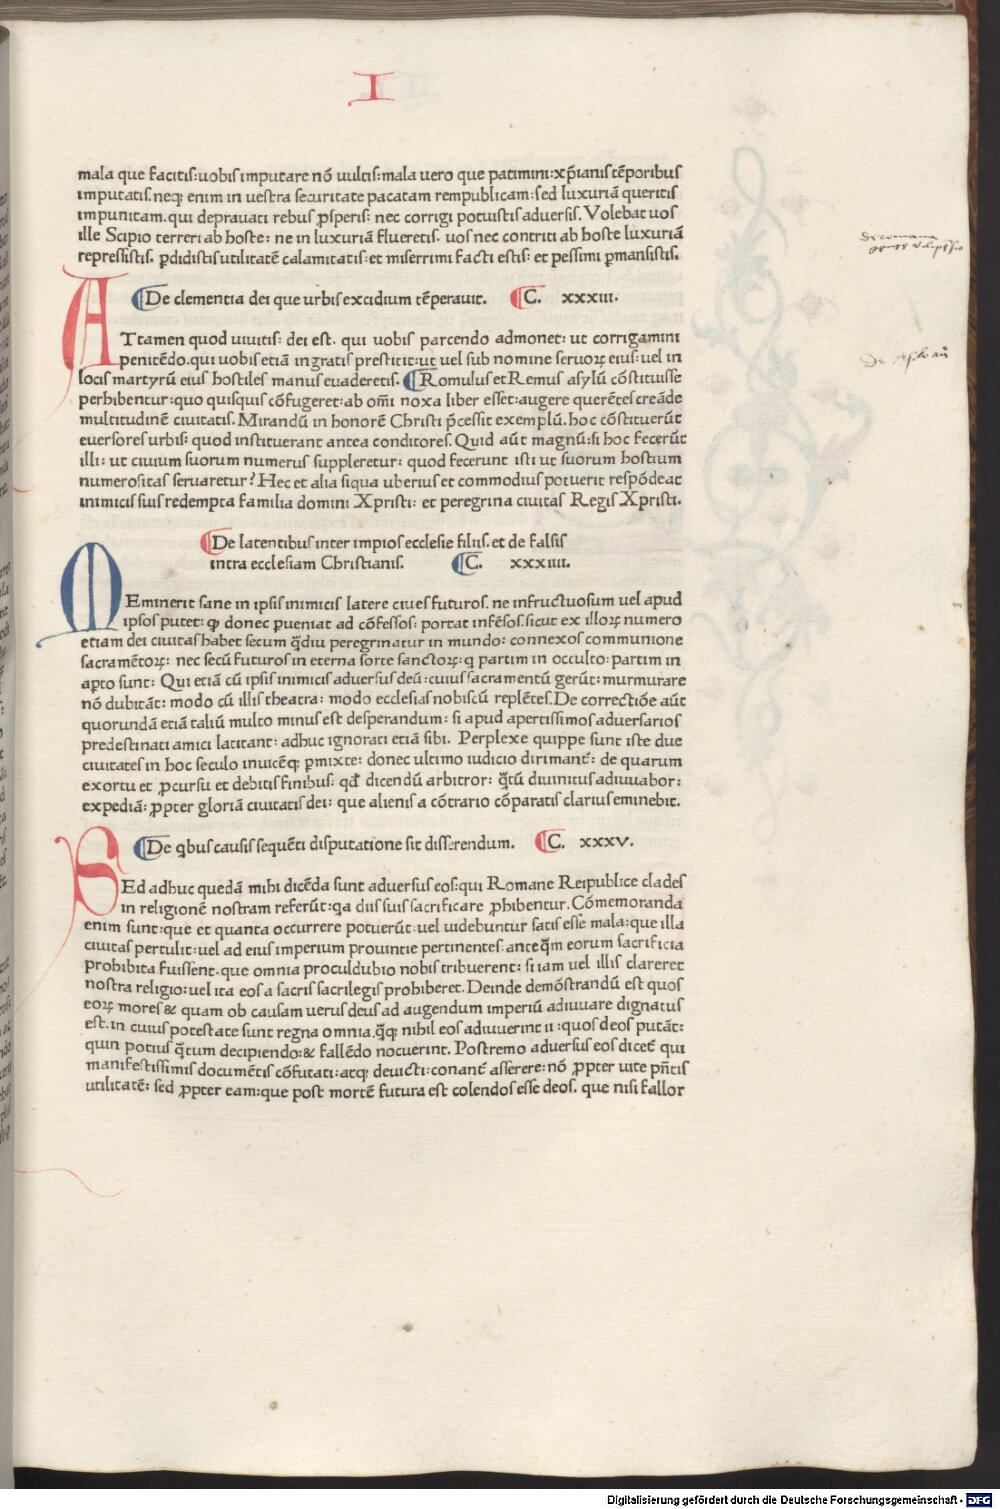 I
mala que facitis: uobis imputare nõ uultis: mala uero que patimini: xp̃ianis tẽporibus
imputatis. neqꝫ enim in uestra securitate pacatam rempublicam: sed luxuriã queritis
impunitam. qui deprauati rebus ꝓsperis: nec corrigi potuistis aduersis. Volebat uos
ille Scipio terreri ab hoste: ne in luxuriã flueretis. uos nec contriti ab hoste luxuriã
repressistis. ꝑdidistis utilitatẽ calamitatis: et miserrimi facti estis: et pessimi ꝑmansistis.
De clementia dei que urbis excidium tẽperauit. C. xxxiii.
ATtamen quod uiuitis: dei est. qui uobis parcendo admonet: ut corrigamini
penitẽdo. qui uobis etiã ingratis prestitit: ut uel sub nomine seruoꝝ eius: uel in
locis martyrũ eius hostiles manus euaderetis. Romulus et Remus asylũ cõstituisse
perhibentur: quo quisquis cõfugeret: ab om̃i noxa liber esset: augere querẽtes creãde
multitudinẽ ciuitatis. Mirandũ in honorẽ Christi p̃cessit exemplũ. hoc cõstituerũt
euersores urbis: quod instituerant antea conditores. Quid aũt magnũ: si hoc fecerũt
illi: ut ciuium suorum numerus suppleretur: quod fecerunt isti ut suorum hostium
numerositas seruaretur? Hec et alia siqua uberius et commodius potuerit respõdeat
inimicis suis redempta familia domini Xpristi: et peregrina ciuitas Regis Xpristi.
De latentibus inter impios ecclesie filiis. et de falsis
intra ecclesiam Christianis. C. xxxiiii.
MEminerit sane in ipsis inimicis latere ciues futuros. ne infructuosum uel apud
ipsos putet: ꝙ donec ꝑueniat ad cõfessos: portat infẽsos. sicut ex illoꝝ numero
etiam dei ciuitas habet secum q̃diu peregrinatur in mundo: connexos communione
sacramẽtoꝝ: nec secũ futuros in eterna sorte sanctoꝝ: q partim in occulto: partim in
apto sunt: Qui etiã cũ ipsis inimicis aduersus deũ: cuius sacramentũ gerũt: murmurare
nõ dubitãt: modo cũ illis theatra: modo ecclesias nobiscũ replẽtes. De correctiõe aũt
quorundã etiã taliũ multo minus est desperandum: si apud apertissimos aduersarios
predestinati amici latitant: adhuc ignorati etiã sibi. Perplexe quippe sunt iste due
ciuitates in hoc seculo inuicẽqꝫ ꝑmixte: donec ultimo iudicio dirimant̃: de quarum
exortu et ꝓcursu et debitis finibus: qđ dicendũ arbitror: q̃tũ diuinitus adiuuabor:
expediã: ꝓpter gloriã ciuitatis dei: que alienis a cõtrario cõparatis clarius eminebit.
De qbus causis sequẽti disputatione sit disserendum. C. xxxv.
SEd adhuc quedã mihi dicẽda sunt aduersus eos: qui Romane Reipublice clades
in religionẽ nostram referũt: qa diis suis sacrificare ꝓhibentur. Cõmemoranda
enim sunt: que et quanta occurrere potuerũt: uel uidebuntur satis esse mala: que illa
ciuitas pertulit: uel ad eius imperium prouintie pertinentes. ante q̃m eorum sacrificia
prohibita fuissent. que omnia proculdubio nobis tribuerent: si iam uel illis clareret
nostra religio: uel ita eos a sacris sacrilegis prohiberet. Deinde demõstrandũ est quos
eoꝝ mores & quam ob causam uerus deus ad augendum imperiũ adiuuare dignatus
est. in cuius potestate sunt regna omnia. q̃qꝫ nihil eos adiuuerint ii: quos deos putãt:
quin potius q̃tum decipiendo: & fallẽdo nocuerint. Postremo aduersus eos dicet̃ qui
manifestissimis documẽtis cõfutati: atqꝫ deuicti: conant̃ asserere: nõ ꝓpter uite pñtis
utilitatẽ: sed ꝓpter eam: que post mortẽ futura est colendos esse deos. que nisi fallor
de romana
Digitalisierung gefördert durch die Deutsche Forschungsgemeinschaft - DFG